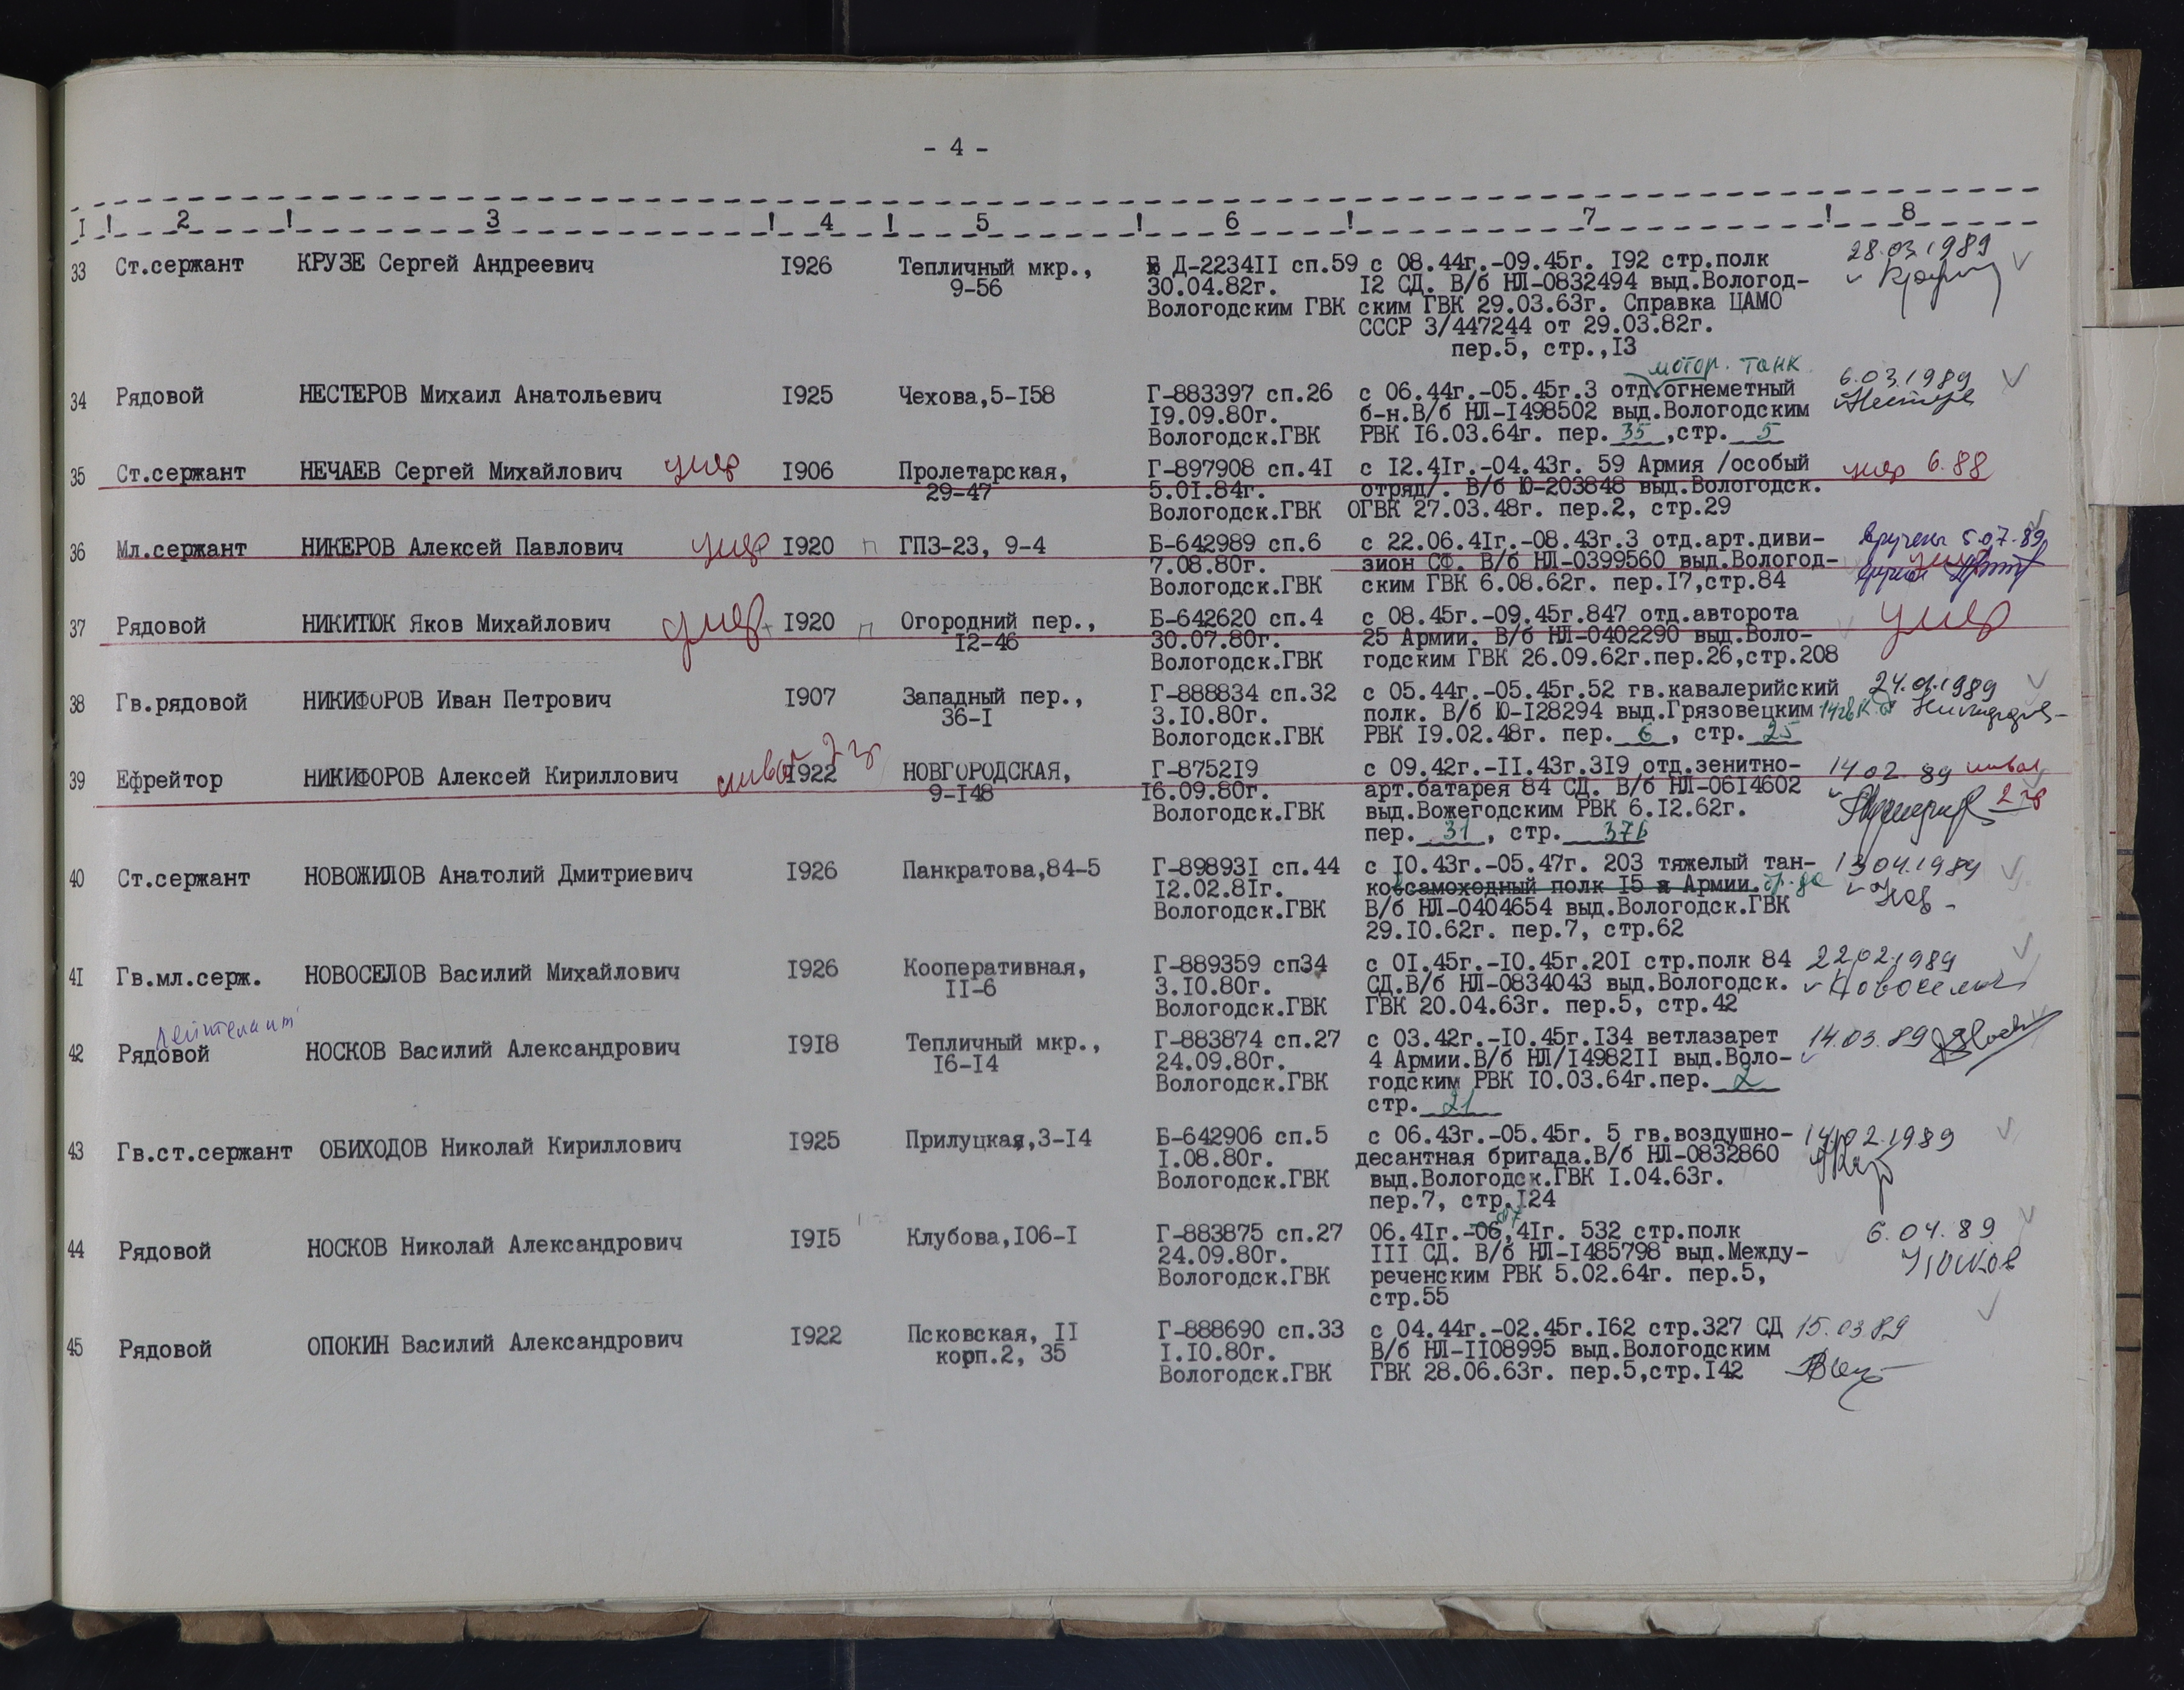 - 4 -
I ! 2 ! 3 ! 4 ! 5 ! 6 ! 7 ! 8
33 Ст.сержант КРУЗЕ Сергей Андреевич I926 Тепличный мкр., Д-2234II сп.59 с 08.44г.-09.45г. I92 стр.полк 28.03.1989
9-56 30.04.82г. I2 СД. В/б НЛ-0832494 выд.Вологод-
Вологодским ГВК ским ГВК 29.03.63г. Справка ЦАМО
СССР 3/447244 от 29.03.82г.
пер.5, стр.,I3
мотор. танк
34 Рядовой НЕСТЕРОВ Михаил Анатольевич I925 Чехова,5-I58 Г-883397 сп.26 с 06.44г.-05.45г.3 отд.огнеметный 6.03.1989
I9.09.80г. б-н.В/б НЛ-I498502 выд.Вологодским
Вологодск.ГВК РВК I6.03.64г. пер. 35 ,стр. 5
35 Ст.сержант НЕЧАЕВ Сергей Михайлович умер I906 Пролетарская, Г-897908 сп.4I с I2.4Iг.-04.43г. 59 Армия /особый умер 6.88
29-47 5.0I.84г. отряд/. В/б Ю-203848 выд.Вологодск.
Вологодск.ГВК ОГВК 27.03.48г. пер.2, стр.29
36 Мл.сержант НИКЕРОВ Алексей Павлович умер I920 п ГПЗ-23, 9-4 Б-642989 сп.6 с 22.06.4Iг.-08.43г.3 отд.арт.диви- вручены 5.07.89
7.08.80г. зион СФ. В/б НЛ-0399560 выд.Вологод- умер
Вологодск.ГВК ским ГВК 6.08.62г. пер.I7,стр.84
37 Рядовой НИКИТЮК Яков Михайлович умер I920 п Огородний пер., Б-642620 сп.4 с 08.45г.-09.45г.847 отд.авторота умер
I2-46 30.07.80г. 25 Армии. В/б НЛ-0402290 выд.Воло-
Вологодск.ГВК годским ГВК 26.09.62г.пер.26,стр.208
38 Гв.рядовой НИКИФОРОВ Иван Петрович I907 Западный пер., Г-888834 сп.32 с 05.44г.-05.45г.52 гв.кавалерийский
36-I 3.I0.80г. полк. В/б Ю-I28294 выд.Грязовецким
Вологодск.ГВК РВК I9.02.48г. пер. 6 , стр. 25
39 Ефрейтор НИКИФОРОВ Алексей Кириллович инвал 2 гр I922 НОВГОРОДСКАЯ, Г-8752I9 с 09.42г.-II.43г.3I9 отд.зенитно- 14 02. 89 инвал
9-I48 I6.09.80г. арт.батарея 84 СД. В/б НЛ-06I4602 2 гр
Вологодск.ГВК выд.Вожегодским РВК 6.I2.62г.
пер. 31 , стр. 376
40 Ст.сержант НОВОЖИЛОВ Анатолий Дмитриевич I926 Панкратова,84-5 Г-89893I сп.44 с I0.43г.-05.47г. 203 тяжелый тан- 13 04.1989
I2.02.8Iг. косамоходный полк I5 я Армии.
Вологодск.ГВК В/б НЛ-0404654 выд.Вологодск.ГВК
29.I0.62г. пер.7, стр.62
4I Гв.мл.серж. НОВОСЕЛОВ Василий Михайлович I926 Кооперативная, Г-889359 сп34 с 0I.45г.-I0.45г.20I стр.полк 84 22.02.1989
II-6 3.I0.80г. СД.В/б НЛ-0834043 выд.Вологодск.
Вологодск.ГВК ГВК 20.04.63г. пер.5, стр.42
лейтенант
42 Рядовой НОСКОВ Василий Александрович I9I8 Тепличный мкр., Г-883874 сп.27 с 03.42г.-I0.45г.I34 ветлазарет 14.03.89
I6-I4 24.09.80г. 4 Армии.В/б НЛ/I4982II выд.Воло-
Вологодск.ГВК годским РВК I0.03.64г.пер. 2
стр. 21
43 Гв.ст.сержант ОБИХОДОВ Николай Кириллович I925 Прилуцкая,3-I4 Б-642906 сп.5 с 06.43г.-05.45г. 5 гв.воздушно- 14.02.1989
I.08.80г. десантная бригада.В/б НЛ-0832860
Вологодск.ГВК выд.Вологодск.ГВК I.04.63г.
пер.7, стр.I24
07
44 Рядовой НОСКОВ Николай Александрович I9I5 Клубова,I06-I Г-883875 сп.27 06.4Iг.-06,4Iг. 532 стр.полк 6.04.89
24.09.80г. III СД. В/б НЛ-I485798 выд.Между- Носков
Вологодск.ГВК реченским РВК 5.02.64г. пер.5,
стр.55
45 Рядовой ОПОКИН Василий Александрович I922 Псковская, II Г-888690 сп.33 с 04.44г.-02.45г.I62 стр.327 СД 15.03.89
корп.2, 35 I.I0.80г. В/б НЛ-II08995 выд.Вологодским
Вологодск.ГВК ГВК 28.06.63г. пер.5,стр.I42